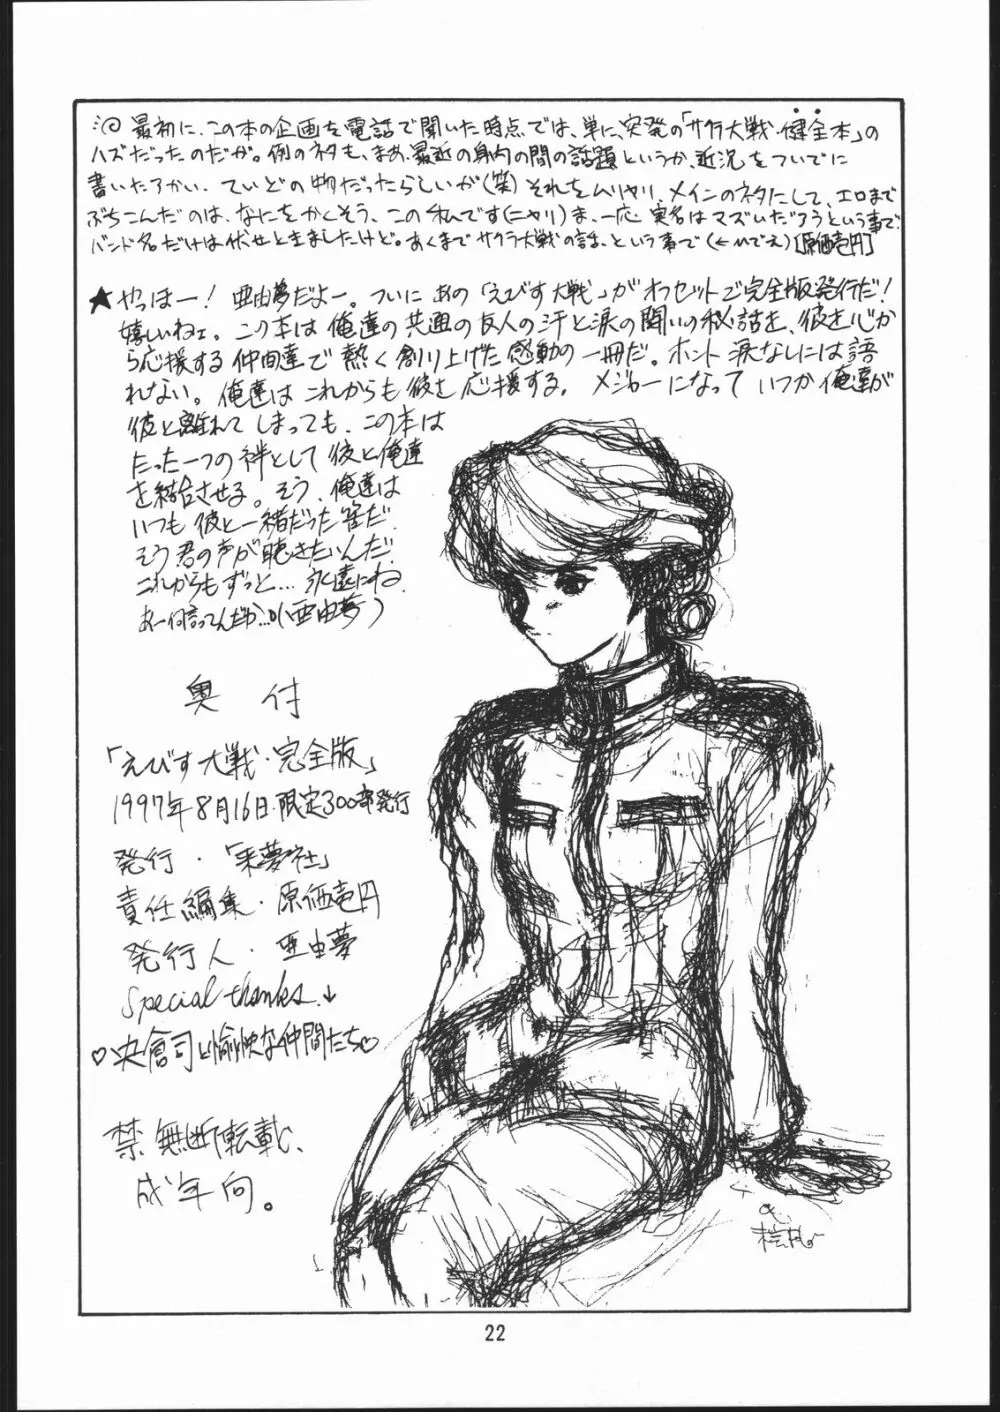 最初に、この本の企画を電話で聞いた時点では、単に、突発の「サクラ大戦・健全本」の
ハズだったのだが。例のネタも、まぁ、最近の身内の間の話題というか、近況をついでに
書いたアかい、ていどの物だったらしいが(笑)それをムリヤリ、メインのネタにして、エロまで
ぶちこんだのは、なにをかくそう、この私です(ニヤリ)ま、一応実名はマズいだろうという事で、
バンド名だけは伏せときましたけど。あくまでサクラ大戦の話、という事で(←ひでえ)[原価壱円]
★やっほー！亜由夢だよー。ついにあの「えびす大戦」がオフセットで完全版発行だ！
嬉しいねェ。この本は俺達の共通の友人の汗と涙の闘いの秘話を、彼を心か
ら応援する仲間達で熱く創り上げた感動の一冊だ。ホント涙なしには語
れない。俺達はこれからも彼を応援する。メジャーになっていつか俺達が
彼と離れてしまっても、この本は
たった一つの絆として彼と俺達
を結合させる。そう、俺達は
いつも彼と一緒だった筈だ。
そう君の声が聴きたいんだ。
これからもずっと…永遠にね。
あー何言ってんだか…。(亜由夢)
奥付
「えびす大戦・完全版」
1997年8月16日・限定300部発行
発行・「来夢社」
責任編集・原価壱円
発行人・亜由夢
Special thanks.↓
♡央倉司と愉快な仲間たち♡
禁無断転載、
成年向。
22